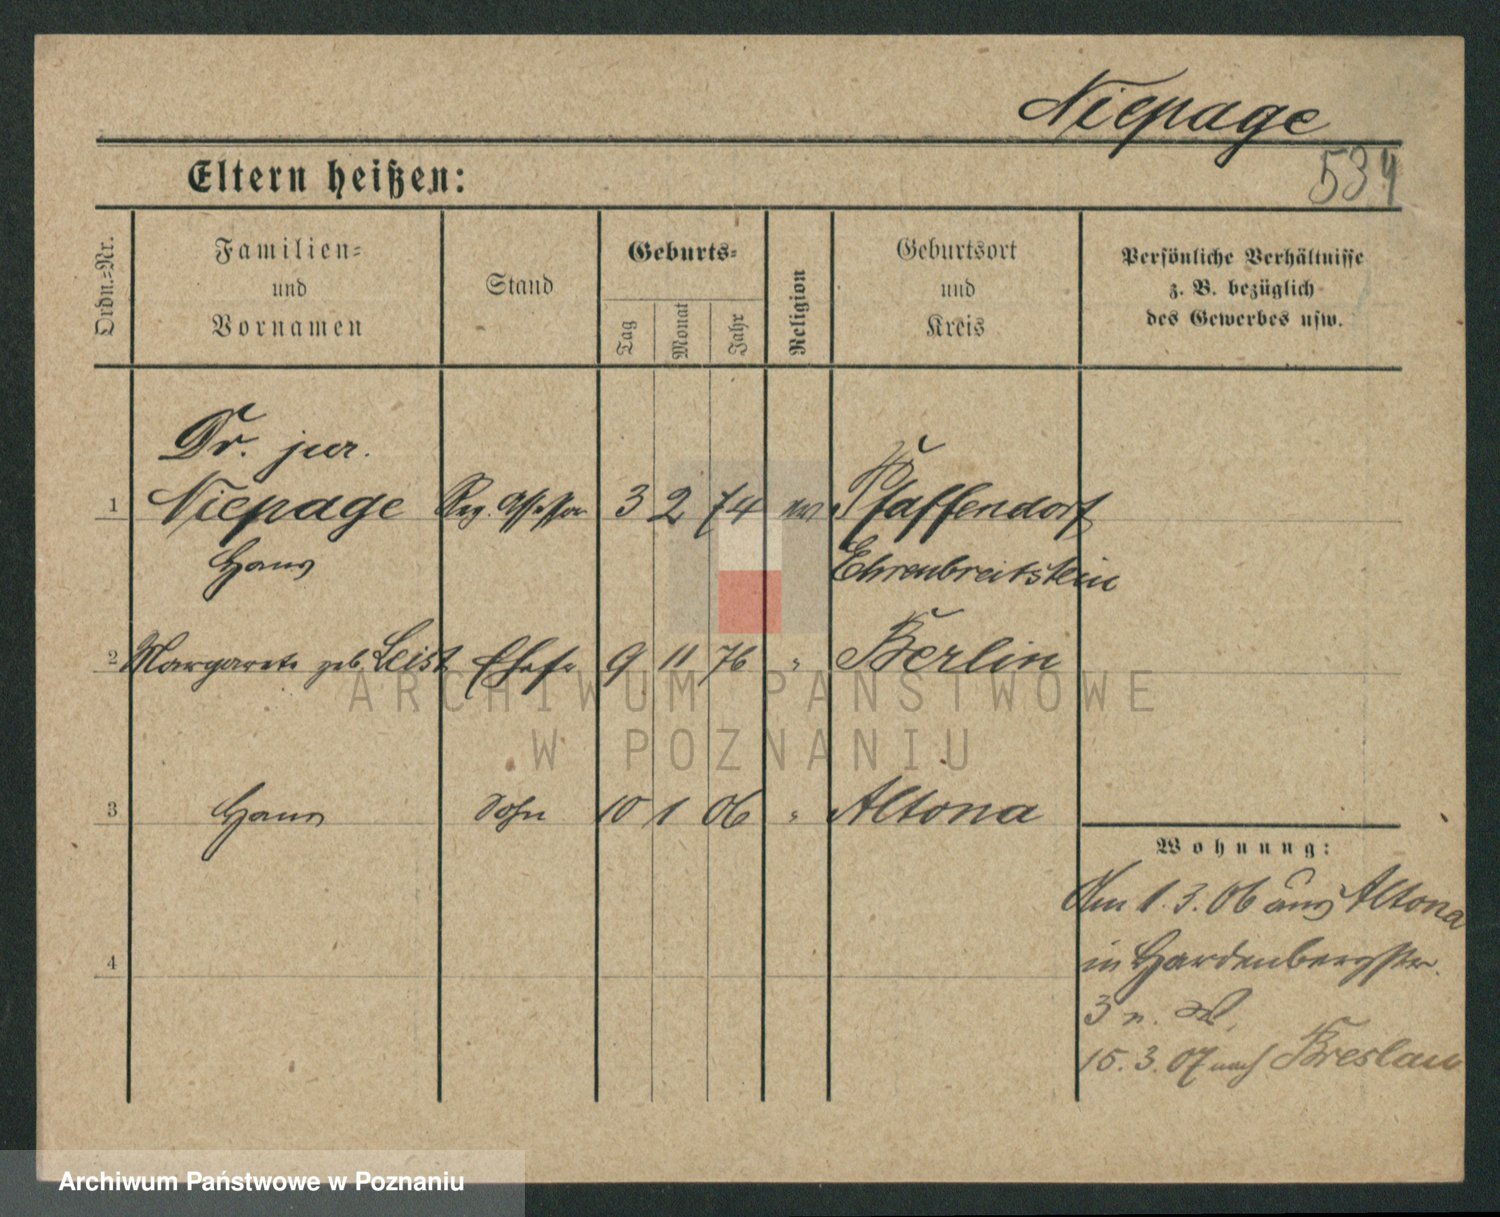 Niepage
534
Eltern heißen:
Ordn.=Nr.
Familien=
und
Vornamen
Stand
Geburts=
Tag
Monat
Jahr
Religion
Geburtsort
und
Kreis
Persönliche Verhältnisse
z. B. bezüglich
des Gewerbes usw.
Dr. jur.
1 Niepage Reg. Assessor 3 2 74 ev Pfaffendorf
Hans Ehrenbreitstein
2 Margarete geb. Leist Ehefr 9 11 76 " Berlin
3 Hans Sohn 10 1 06 " Altona
Wohnung:
Am 1.3.06 aus Altona
in Hardenbergstr.
4
3 n.
15.3.07 nach Breslau
ARCHIWUM PAŃSTWOWE
W POZNANIU
Archiwum Państwowe w Poznaniu